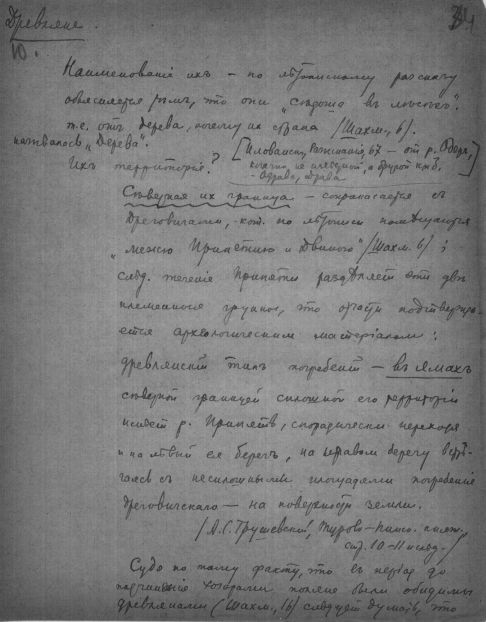 Древляне.
34
10.
Наименованіе ихъ – по лѣтописному разсказу
объясняется тѣмъ, что они „сѣдоша в лѣсѣхъ".
т.е. отъ дерева, почему их страна (Шахм., 6).
называлось „Дерева". [Иловайск, Розысканія, 67 – от р.
Их территорія?
Сѣверная их граница – соприкасается с
Дреговичами, кот. по лѣтописи помѣщаются
„межю Припѣтию и Двиною" (Шахм. 6);
слѣд. теченіе Припяти раздѣляет эти двѣ
племенныя группы, что отчасти подтвержда-
ется археологическим матеріалом:
древлянскій типъ погребеній – в ямахъ
сѣверной границей сплошной его территоріи
имѣет р. Припять, спорадически переходя
и на лѣвый ея берегъ, на правом берегу встрѣ-
чаясь с несплошными площадями погребение
дреговичскаго – на поверхности земли.
(А.С. Грушевскій, Турово-Пинс. княж.
стр. 10-11 и слѣд.)
Судя по тому факту, что въ період до
подчиненія хозарами поляне были обидимы
древлянами (Шахм., 16) слѣдует думать, что